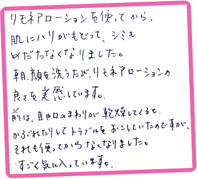 リモネアローションを使ってから、
肌にハリがもどって、シミも
めだたなくなりました。
朝、顔を洗うたび、リモネアローションの
良さを実感しています。
前は、目や口のまわりが乾燥してくると、
かぶれたりしてトラブルをおこしていたのですが、
それも使ってからなくなりました。
すごく気に入っています。